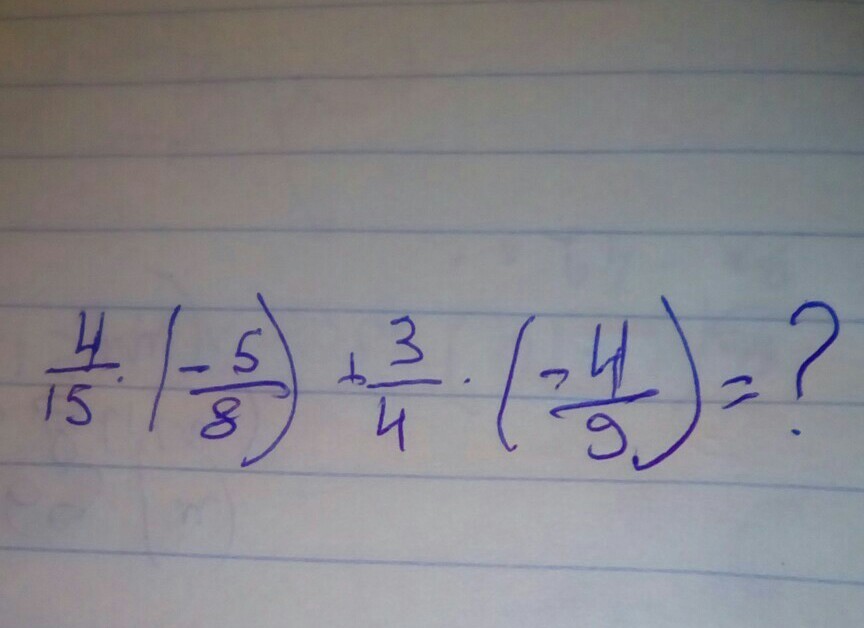 4/15 · (-5/8) + 3/4 · (-4/9) = ?